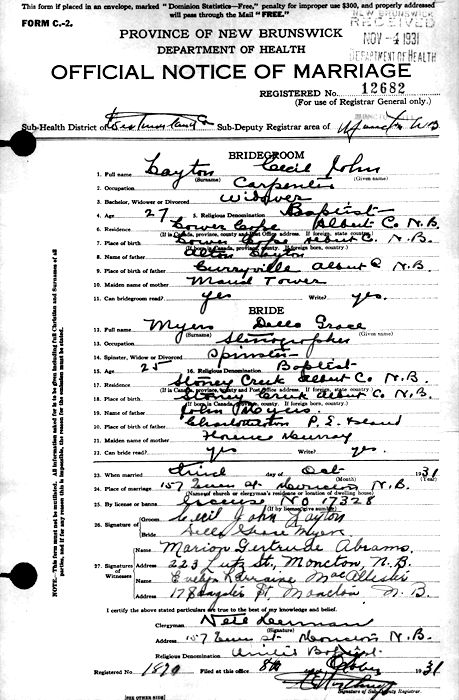 If this form is placed in an envelope, marked "Dominion Statistics—Free," penalty for improper use $300, and properly addressed
will pass through the Mail "FREE."
FORM C.-2.
NEW BRUNSWICK
RECEIVED
NOV -4 1931
DEPARTMENT OF HEALTH
PROVINCE OF NEW BRUNSWICK
DEPARTMENT OF HEALTH
OFFICIAL NOTICE OF MARRIAGE
REGISTERED No. 12682
(For use of Registrar General only.)
Sub-Health District of Westmorland Sub-Deputy Registrar area of Moncton N B
BRIDEGROOM
1. Full name Layton Cecil John
(Surname) (Given name)
2. Occupation Carpenter
3. Bachelor, Widower or Divorced Widower
4. Age 27 5. Religious Denomination Baptist
6. Residence Lower Cape Albert Co N.B.
(If in Canada, province, county and Post Office address. If foreign, state country)
7. Place of birth Lower Cape Albert C. N.B.
(If born in Canada, province, county. If foreign born, country)
8. Name of father Alton Layton
9. Place of birth of father Curryville Albert C N.B.
10. Maiden name of mother Maud Tower
11. Can bridegroom read? yes Write? yes.
BRIDE
12. Full name Myers Della Grace
(Surname) (Given name)
13. Occupation Stenographer
14. Spinster, Widow or Divorced Spinster
15. Age 25 16. Religious Denomination Baptist
17. Residence Stoney Creek Albert Co N.B.
(If in Canada, province, county and Post Office address. If foreign, state country)
18. Place of birth Stoney Creek Albert Co N.B.
(If born in Canada, province, county. If foreign born, country)
19. Name of father John Myers
20. Place of birth of father Charlottetown P. E. Island
21. Maiden name of mother Florence Murray
22. Can bride read? yes Write? yes.
23. When married third day of Oct 1931
(Month) (Year)
24. Place of marriage 157 Queen St Moncton N.B.
(Name of church or clergyman's residence or location of dwelling house)
25. By license or banns License No 17328
(If by license give number)
26. Signature of Groom Cecil John Layton
Bride Della Grace Myers
27. Signature of Witnesses
Name Marion Gertrude Abrams
Address 223 Lutz St., Moncton, N.B.
Name Evelyn Lorraine MacAllister
Address 178 St. Moncton N. B
I certify the above stated particulars are true to the best of my knowledge and belief.
Clergyman Neil Herman
(Signature)
Address 157 Queen St Moncton N.B.
Religious Denomination United Baptist
Registered No. 1890 Filed at this office 8th October 1931
Signature of Sub-Deputy Registrar.
(PER OTHER SIDE)
NOTE.—This form must not be mutilated, all information asked for is to be given including full Christian and Surnames of all
parties, and if for any reason this is impossible, the reason for the omission must be stated.